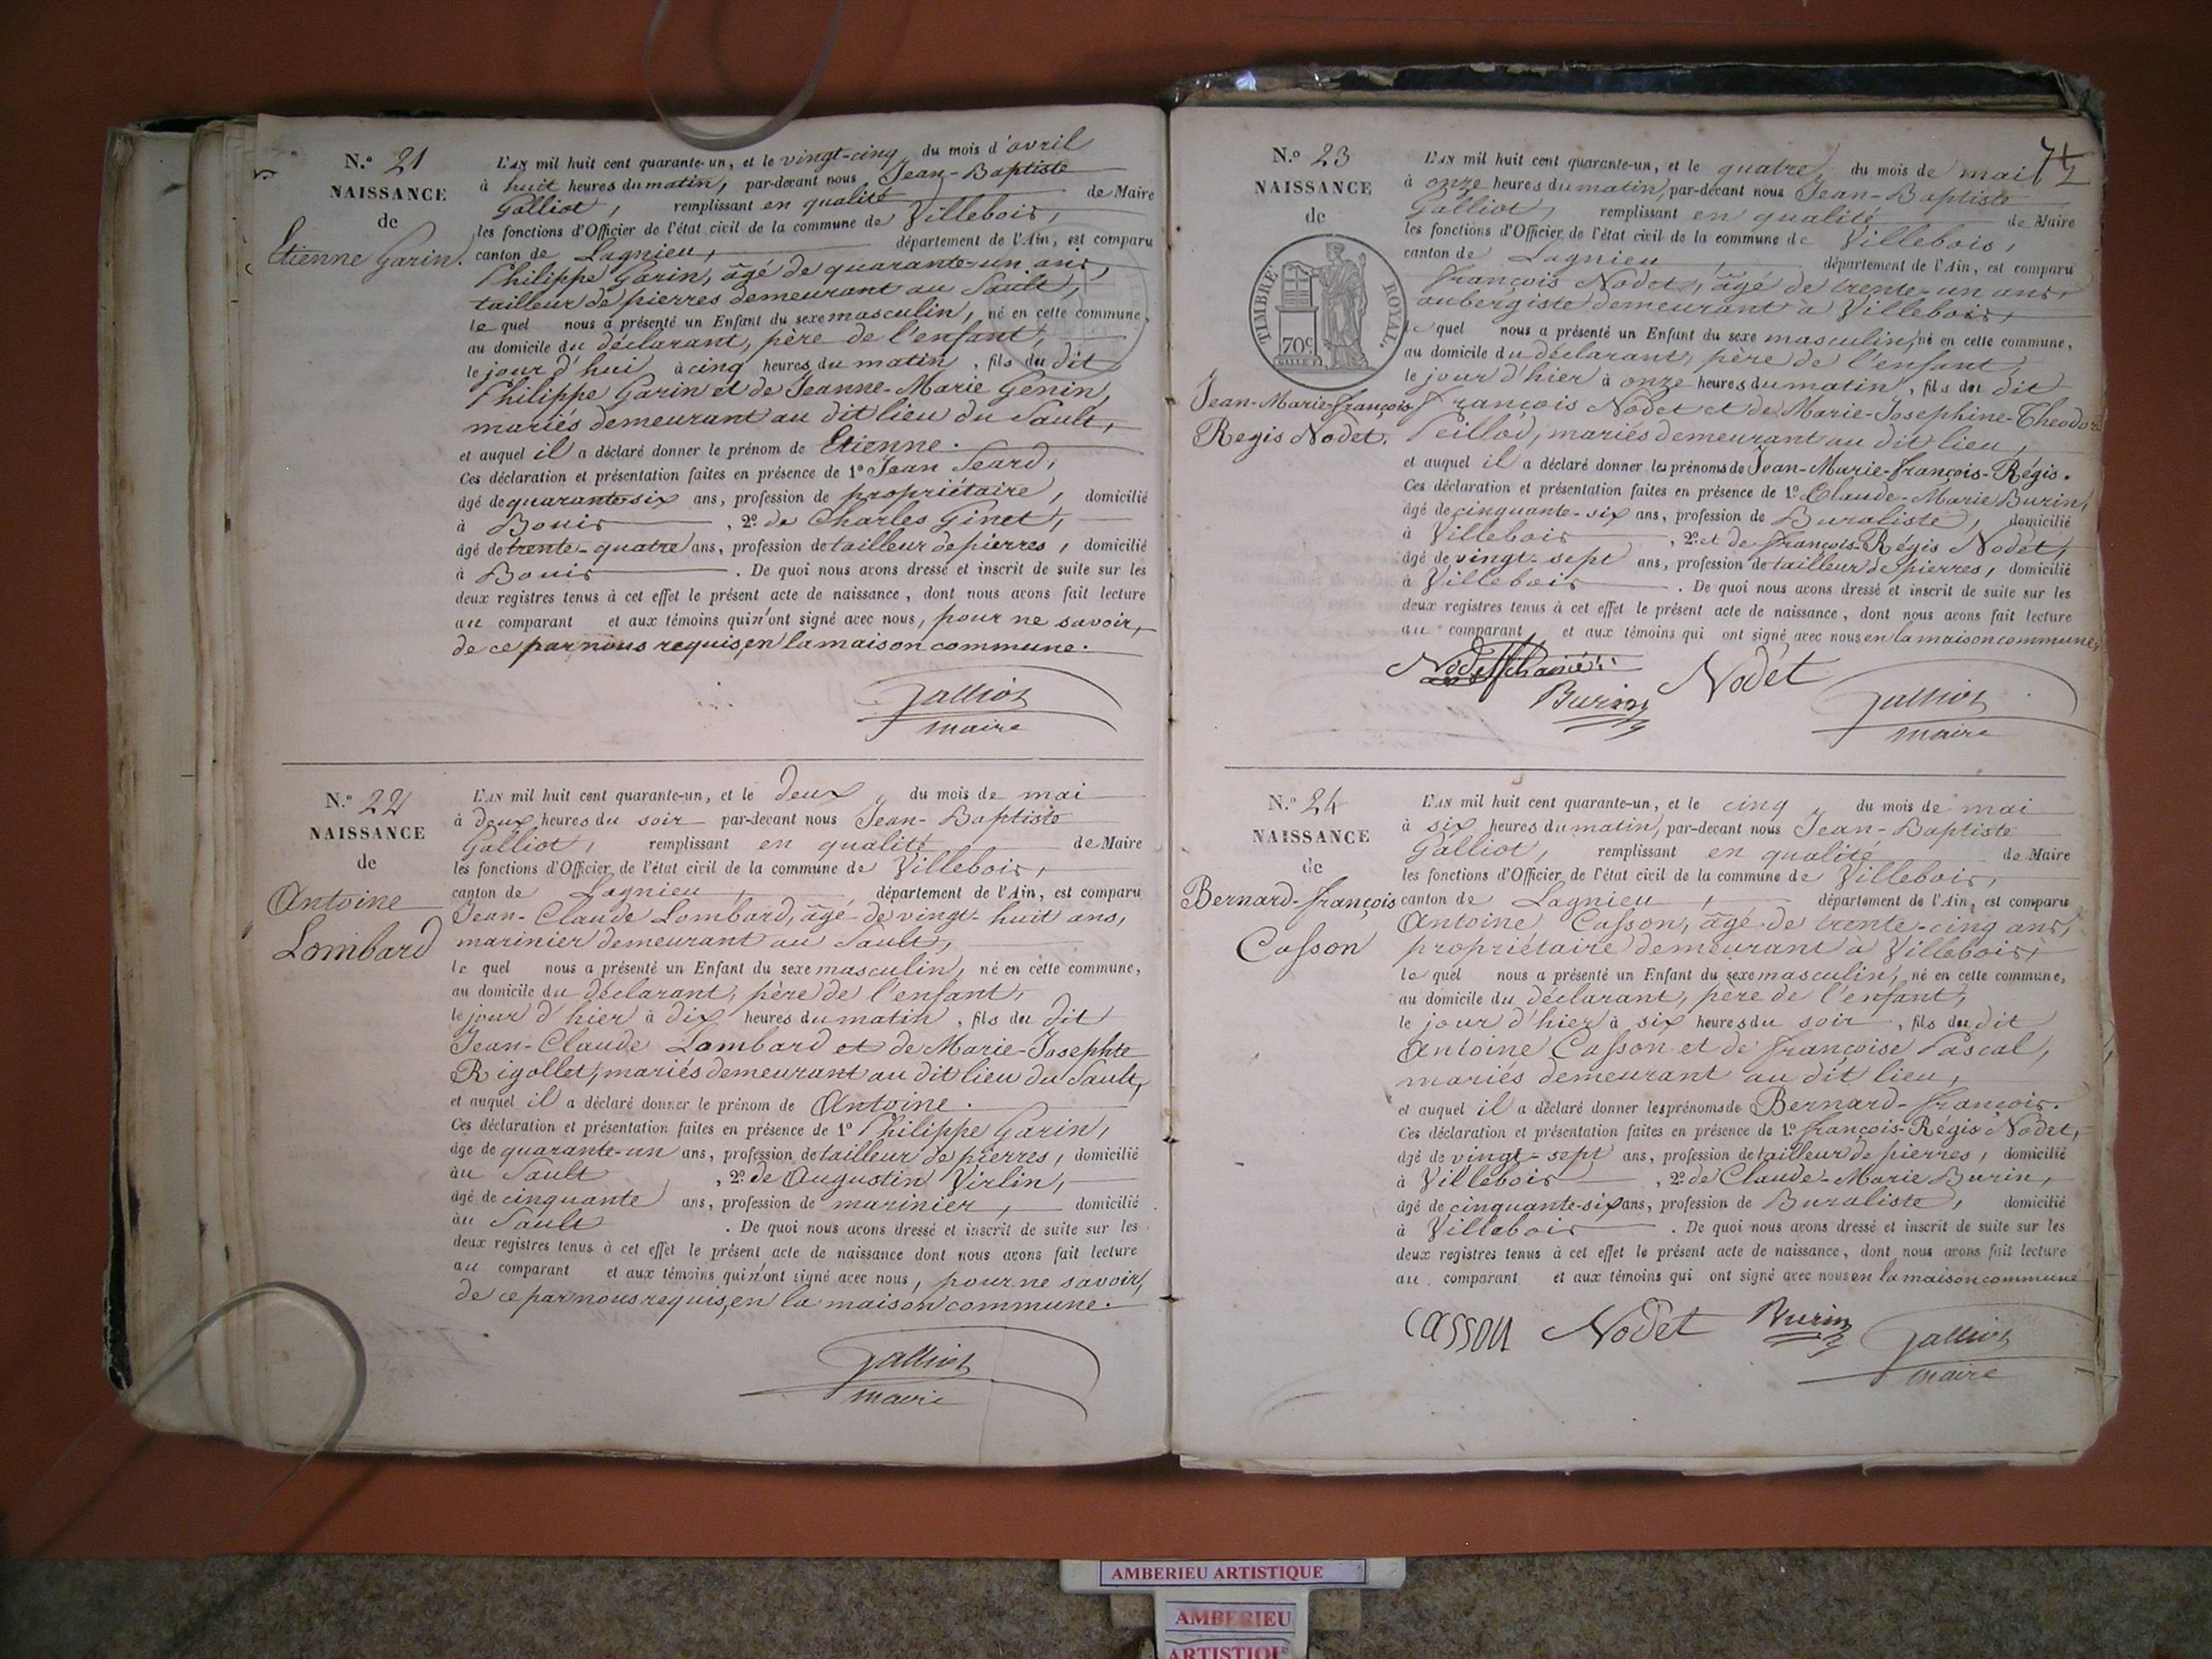 N.º 21
NAISSANCE
de
Etienne Garin.
L'AN mil huit cent quarante-un, et le vingt-cinq du mois d'avril
à huit heures du matin, par-devant nous Jean-Baptiste
Galliot, remplissant en qualité de Maire
les fonctions d'Officier de l'état civil de la commune de Villebois,
canton de Lagnieu, département de l'Ain, est comparu
Philippe Garin, âgé de quarante-un ans,
tailleur de pierres demeurant au Sault,
le quel nous a présenté un Enfant du sexe masculin, né en cette commune,
au domicile du déclarant, père de l'enfant,
le jour d'hui à cinq heures du matin, fils du dit
Philippe Garin et de Jeanne-Marie Genin,
mariés demeurant au dit lieu du Sault,
et auquel il a déclaré donner le prénom de Etienne.
Ces déclaration et présentation faites en présence de 1º Jean Seard,
âgé de quarante-six ans, profession de propriétaire, domicilié
à Bouis, 2º de Charles Ginet,
âgé de trente-quatre ans, profession de tailleur de pierres, domicilié
à Bouis. De quoi nous avons dressé et inscrit de suite sur les
deux registres tenus à cet effet le présent acte de naissance, dont nous avons fait lecture
au comparant et aux témoins qui n'ont signé avec nous, pour ne savoir,
de ce par nous requis, en la maison commune.
Galliot
maire
N.º 22
NAISSANCE
de
Antoine
Lombard
L'AN mil huit cent quarante-un, et le deux du mois de mai
à deux heures du soir par-devant nous Jean-Baptiste
Galliot, remplissant en qualité de Maire
les fonctions d'Officier de l'état civil de la commune de Villebois,
canton de Lagnieu, département de l'Ain, est comparu
Jean-Claude Lombard, âgé de vingt-huit ans,
marinier demeurant au Sault,
le quel nous a présenté un Enfant du sexe masculin, né en cette commune,
au domicile du déclarant, père de l'enfant,
le jour d'hier à dix heures du matin, fils du dit
Jean-Claude Lombard et de Marie-Josephte
Rigollet, mariés demeurant au dit lieu du Sault,
et auquel il a déclaré donner le prénom de Antoine.
Ces déclaration et présentation faites en présence de 1º Philippe Garin,
âgé de quarante-un ans, profession de tailleur de pierres, domicilié
au Sault, 2º de Augustin Virlin,
âgé de cinquante ans, profession de marinier, domicilié
au Sault. De quoi nous avons dressé et inscrit de suite sur les
deux registres tenus à cet effet le présent acte de naissance dont nous avons fait lecture
au comparant et aux témoins qui n'ont signé avec nous, pour ne savoir,
de ce par nous requis, en la maison commune.
Galliot
maire
N.º 23
NAISSANCE
de
TIMBRE ROYAL.
70c
Jean-Marie-françois
Regis Nodet.
L'AN mil huit cent quarante-un, et le quatre du mois de mai
à onze heures du matin, par-devant nous Jean-Baptiste
Galliot, remplissant en qualité de Maire
les fonctions d'Officier de l'état civil de la commune de Villebois,
canton de Lagnieu, département de l'Ain, est comparu
françois Nodet, âgé de trente-un ans,
aubergiste demeurant à Villebois,
le quel nous a présenté un Enfant du sexe masculin, né en cette commune,
au domicile du déclarant, père de l'enfant,
le jour d'hier à onze heures du matin, fils du dit
françois Nodet et de Marie-Josephine-Theodore
Peillod, mariés demeurant au dit lieu,
et auquel il a déclaré donner les prénoms de Jean-Marie-françois-Régis.
Ces déclaration et présentation faites en présence de 1º Claude-Marie Burin,
âgé de cinquante-six ans, profession de Buraliste, domicilié
à Villebois, 2º et de françois-Régis Nodet,
âgé de vingt-sept ans, profession de tailleur de pierres, domicilié
à Villebois. De quoi nous avons dressé et inscrit de suite sur les
deux registres tenus à cet effet le présent acte de naissance, dont nous avons fait lecture
au comparant et aux témoins qui ont signé avec nous en la maison commune,
Nodet Nodet
Burin Galliot
maire
N.º 24
NAISSANCE
de
Bernard-françois
Casson
L'AN mil huit cent quarante-un, et le cinq du mois de mai
à six heures du matin, par-devant nous Jean-Baptiste
Galliot, remplissant en qualité de Maire
les fonctions d'Officier de l'état civil de la commune de Villebois,
canton de Lagnieu, département de l'Ain, est comparu
Antoine Casson, âgé de trente-cinq ans,
propriétaire demeurant à Villebois,
le quel nous a présenté un Enfant du sexe masculin, né en cette commune,
au domicile du déclarant, père de l'enfant,
le jour d'hier à six heures du soir, fils du dit
Antoine Casson et de françoise Pascal,
mariés demeurant au dit lieu,
et auquel il a déclaré donner les prénoms de Bernard-françois.
Ces déclaration et présentation faites en présence de 1º françois-Régis Nodet,
âgé de vingt-sept ans, profession de tailleur de pierres, domicilié
à Villebois, 2º de Claude-Marie Burin,
âgé de cinquante-six ans, profession de Buraliste, domicilié
à Villebois. De quoi nous avons dressé et inscrit de suite sur les
deux registres tenus à cet effet le présent acte de naissance, dont nous avons fait lecture
au comparant et aux témoins qui ont signé avec nous en la maison commune
Casson Nodet Burin Galliot
maire
AMBERIEU ARTISTIQUE
AMBERIEU
ARTISTIQUE